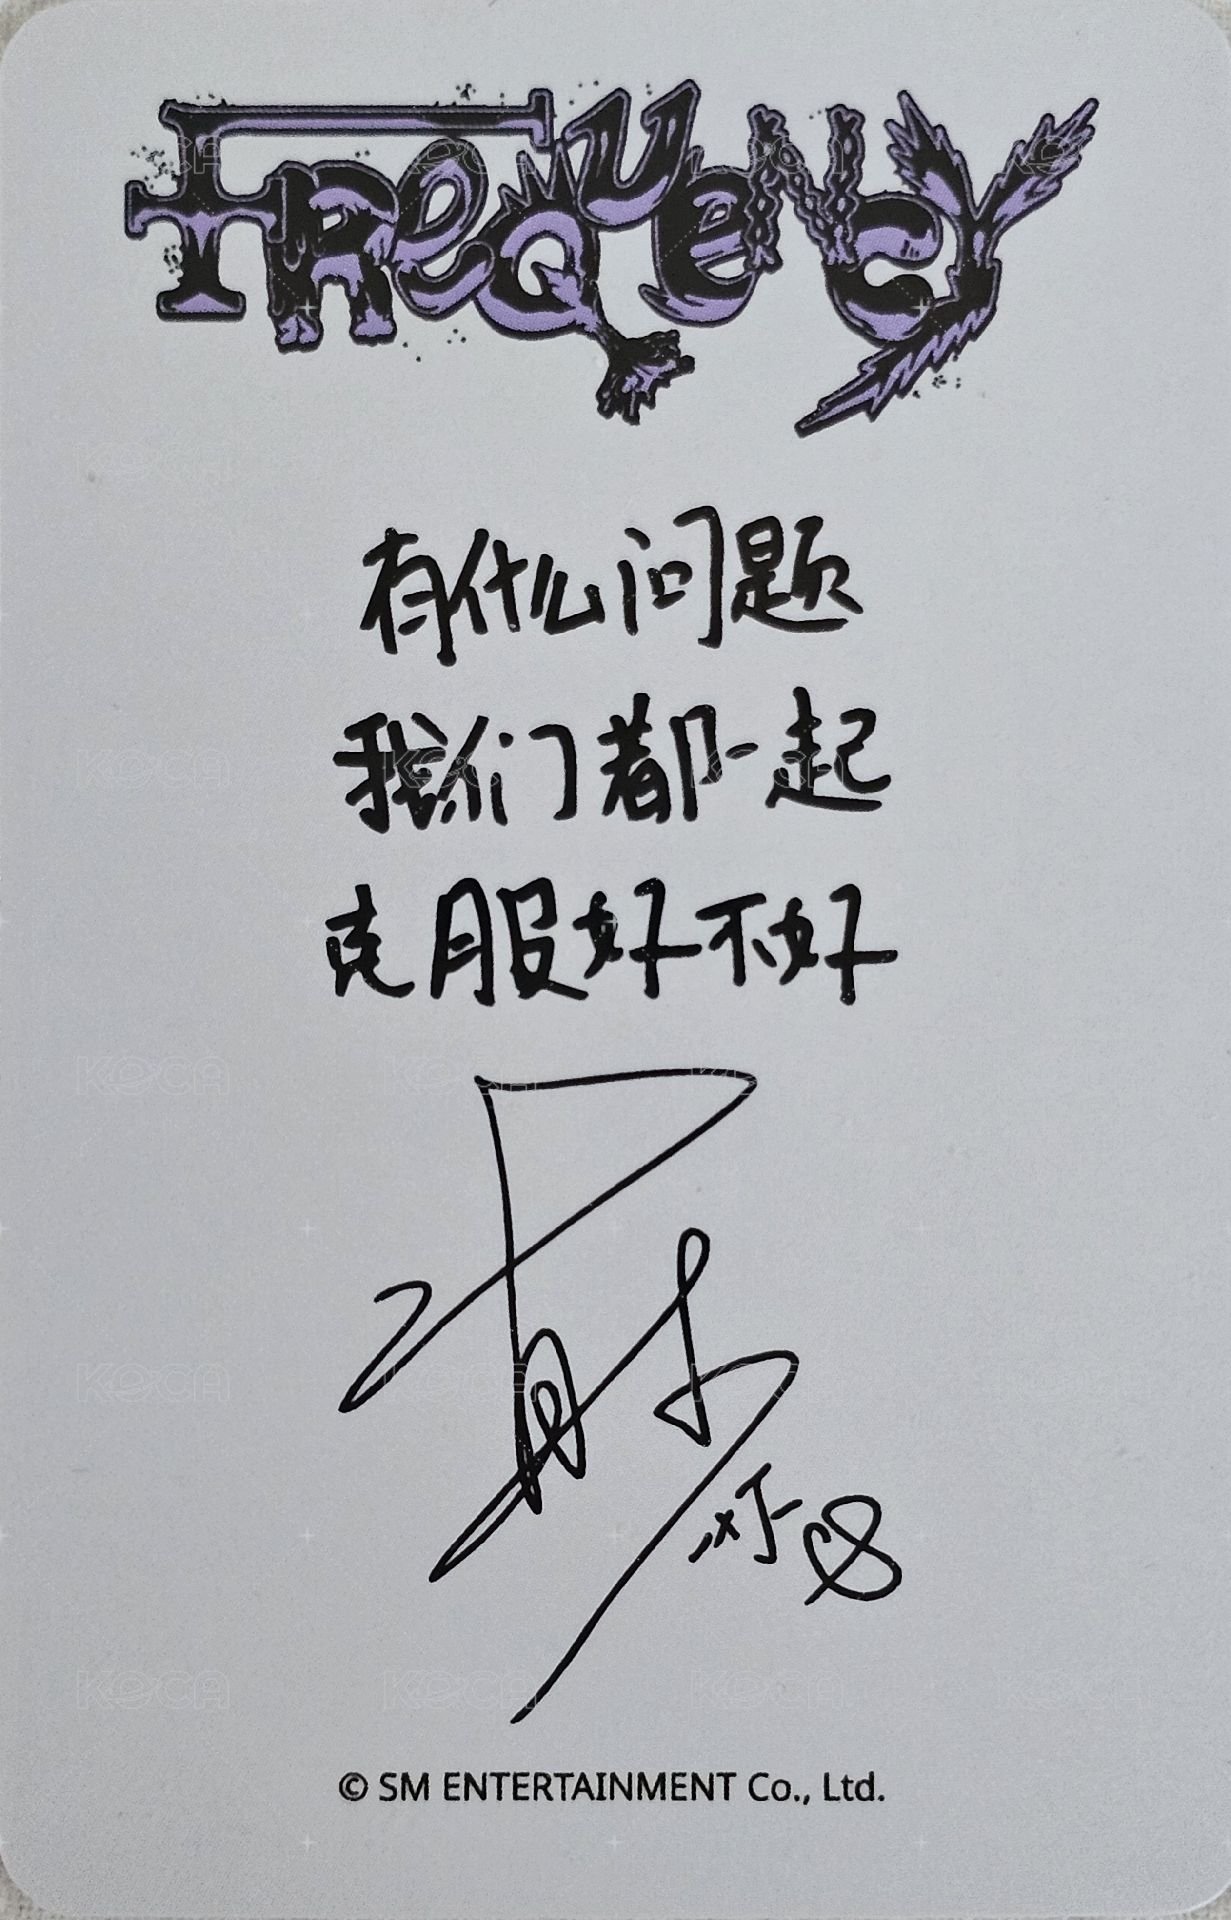 FREQUENCY
有什么问题
我们都一起
克服好不好
© SM ENTERTAINMENT Co., Ltd.
KOCA